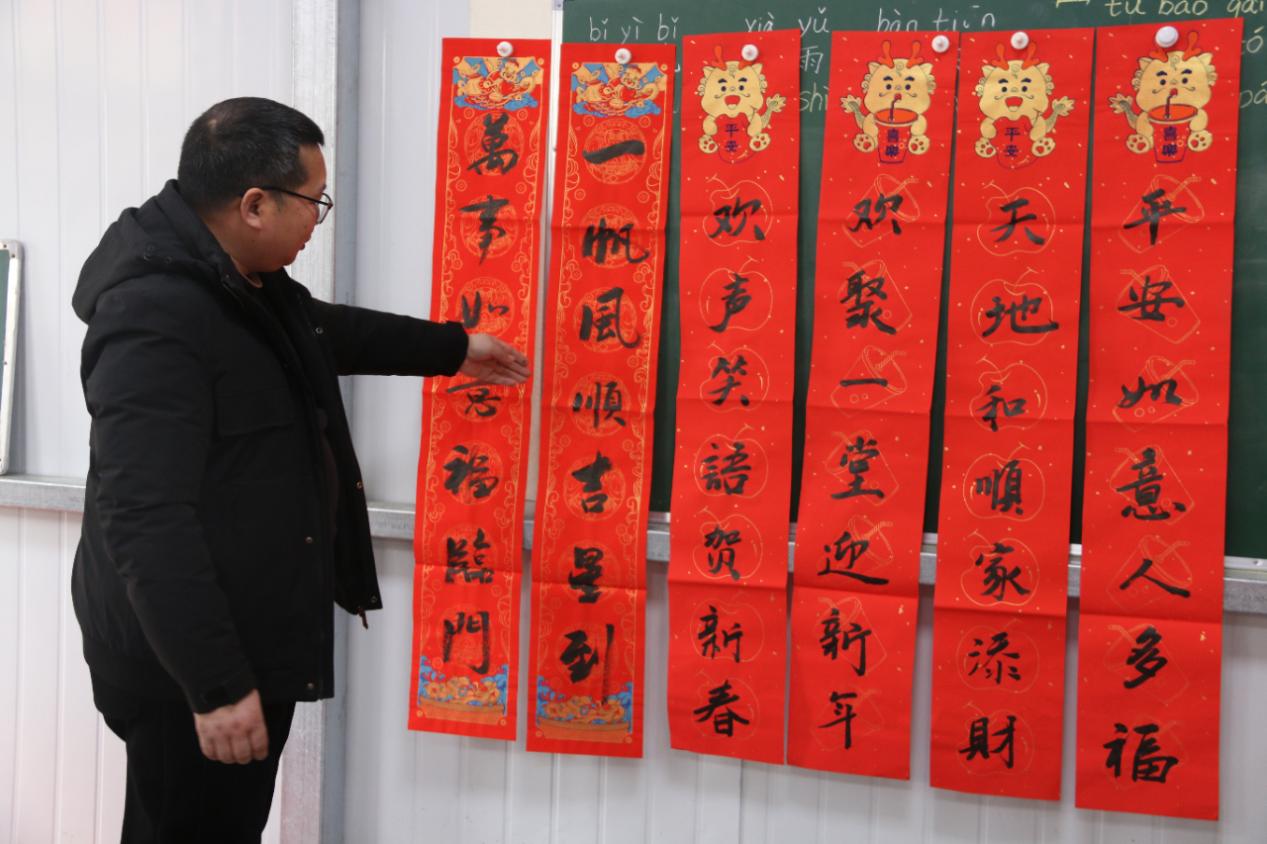 bǐ yì bǐ xià yǔ bàn tiān
雨
shì
萬事如意福臨門
一帆風順吉星到
平安
欢声笑語贺新春
喜樂
欢聚一堂迎新年
平安
天地和順家添財
喜樂
平安如意人多福